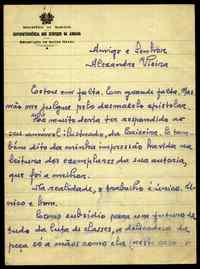 Amigo e Senhor
Alexandre Vieira
Estou em falta. Com grande falta. Mas
não me julgue pelo desmazelo epistolar.
Há muito devia ter respondido ao
seu amável, ilustrado, da Caixeiro. E tam
bém dito da minha impressão havida na
leitura dos exemplares da sua autoria,
que foi a melhor.
Na realidade, o trabalho é único. Úni
co e bom.
Como subsídio para um futuro es
tudo da luta de classes, a delicadeza da
peça só a mãos como ela